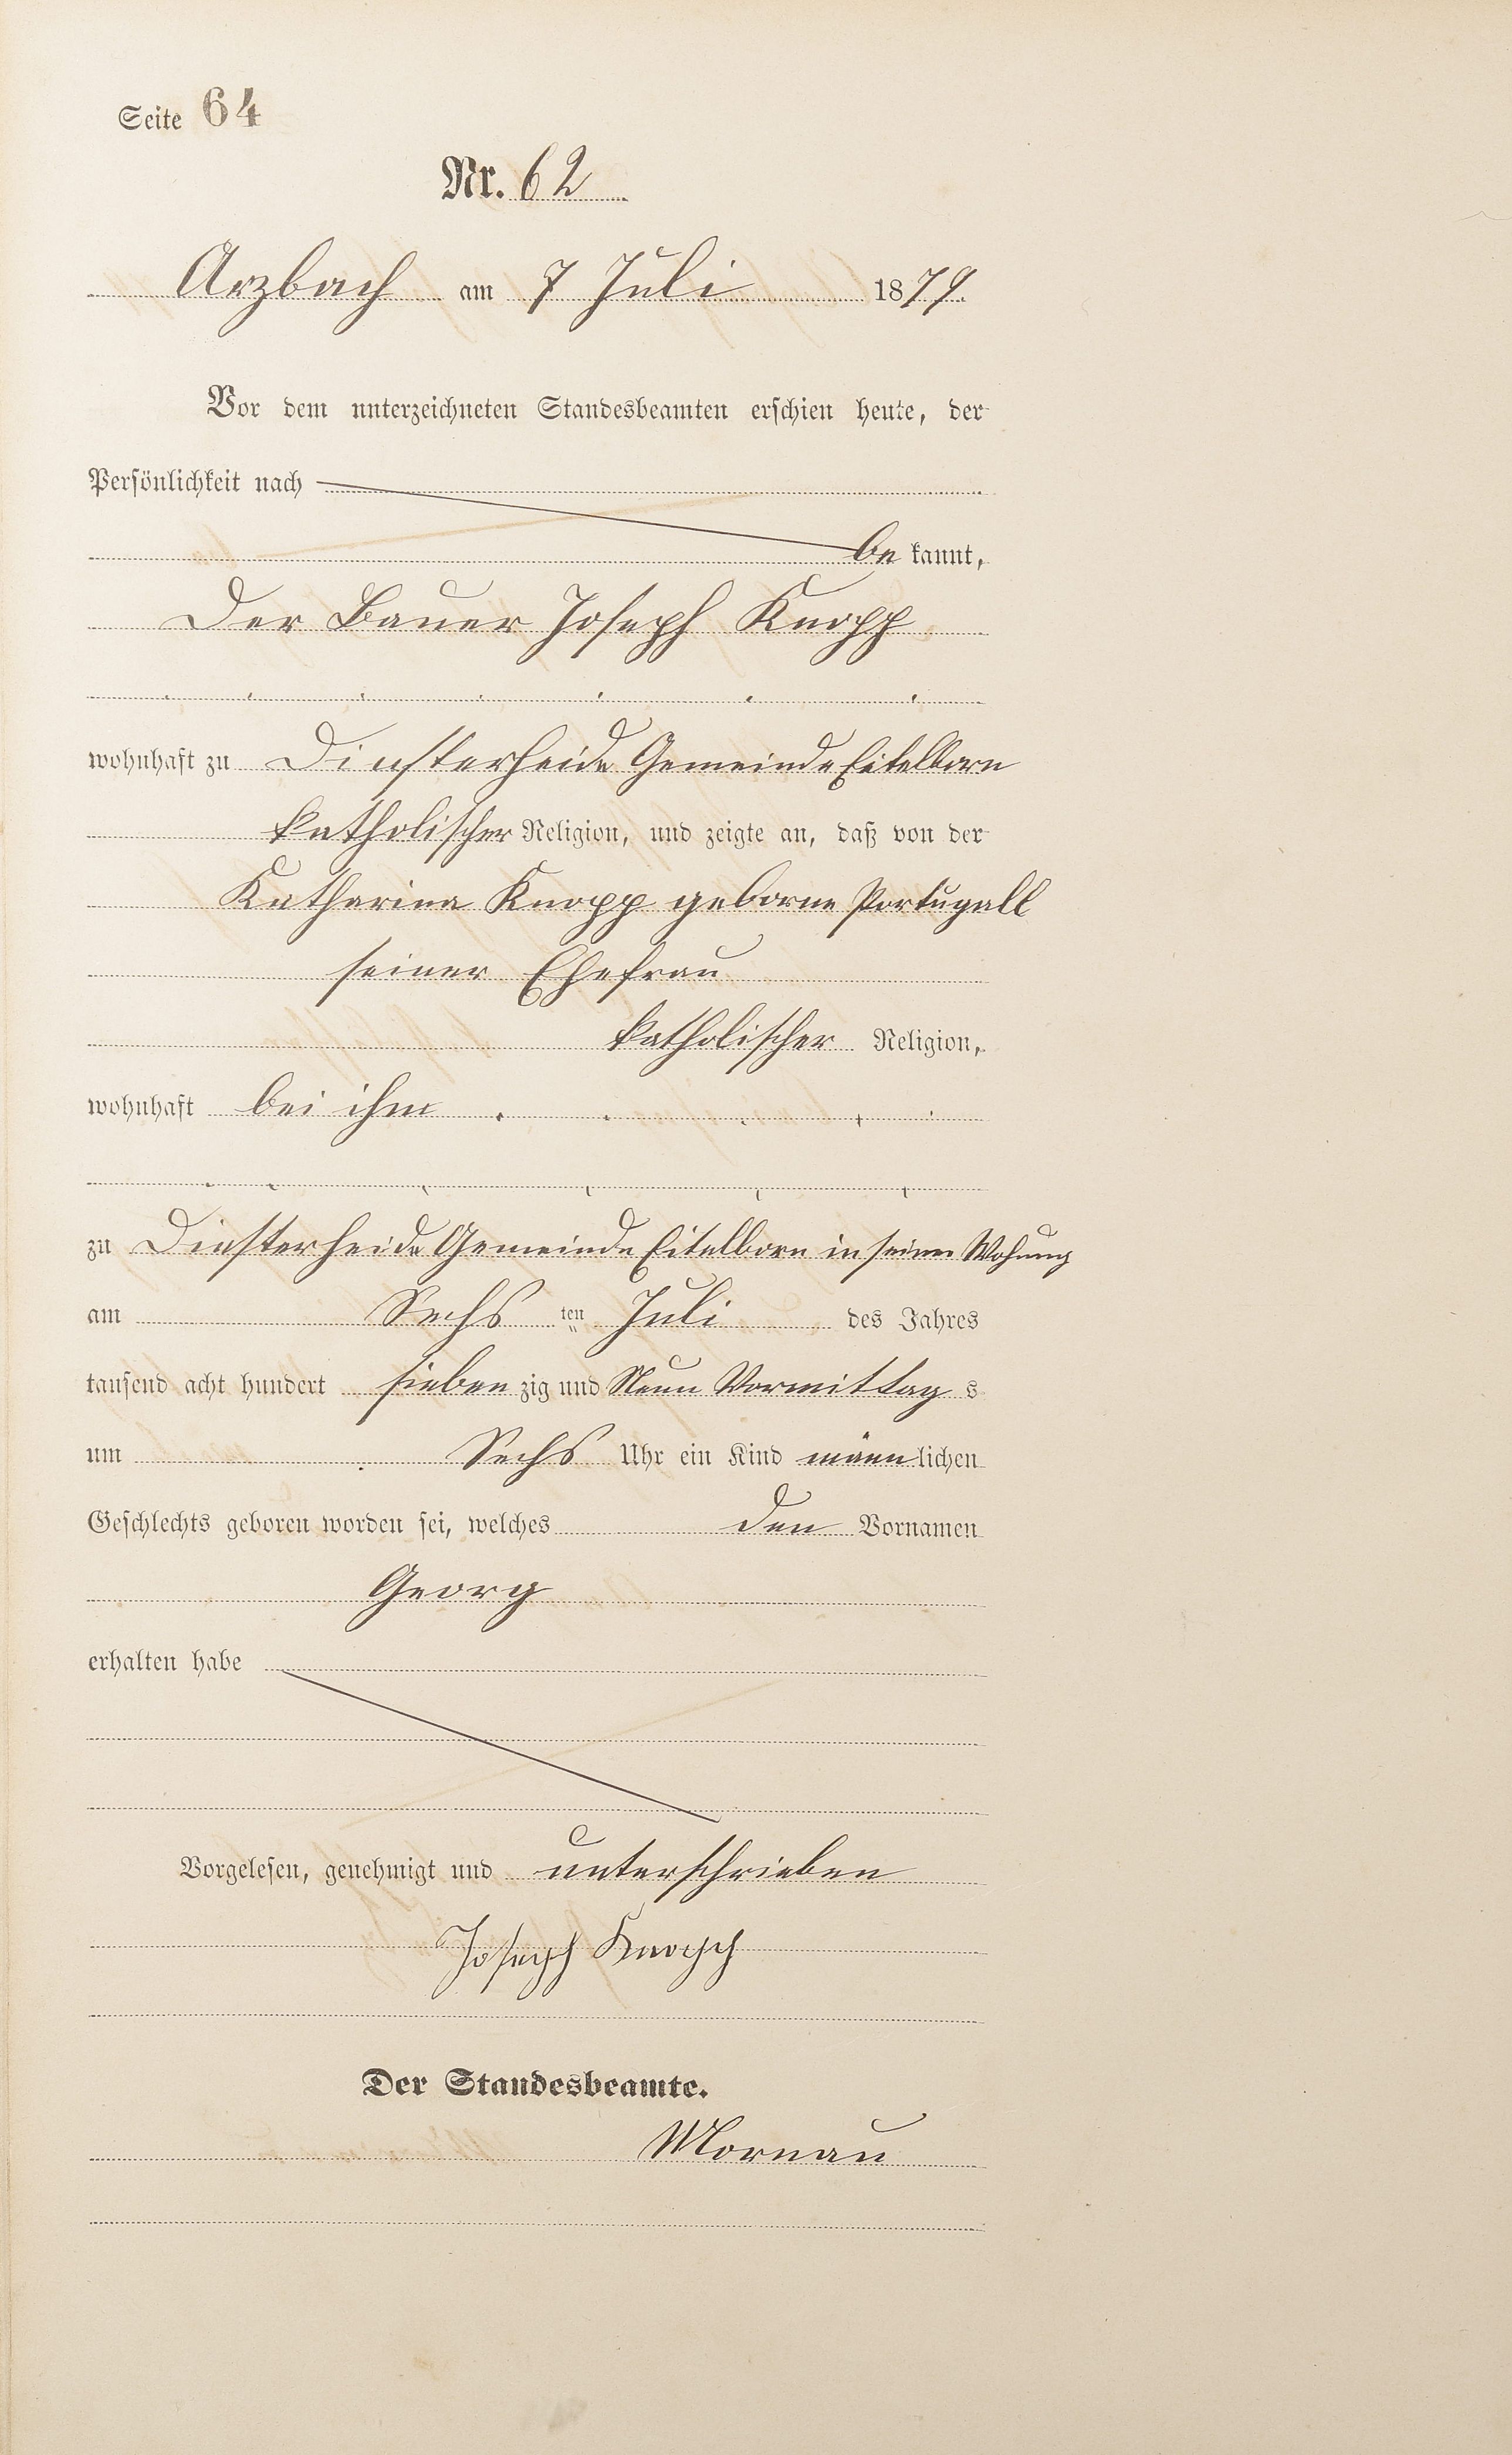 Seite 64
Nr. 62
Arzbach am 7 Juli 1879.
Vor dem unterzeichneten Standesbeamten erschien heute, der
Persönlichkeit nach
be kannt,
Der Bauer Joseph Knopp
wohnhaft zu Dinsterheide Gemeinde Eitelborn
katholischer Religion, und zeigte an, daß von der
Katharina Knopp geborne Portugall
seiner Ehefrau
katholischer Religion,
wohnhaft bei ihm
zu Dinsterheide Gemeinde Eitelborn in seiner Wohnung
am Sechs ten Juli des Jahres
tausend acht hundert sieben zig und Neun Vormittag s
um Sechs Uhr ein Kind männlichen
Geschlechts geboren worden sei, welches den Vornamen
Georg
erhalten habe
Vorgelesen, genehmigt und unterschrieben
Joseph Knopp
Der Standesbeamte.
Mornau